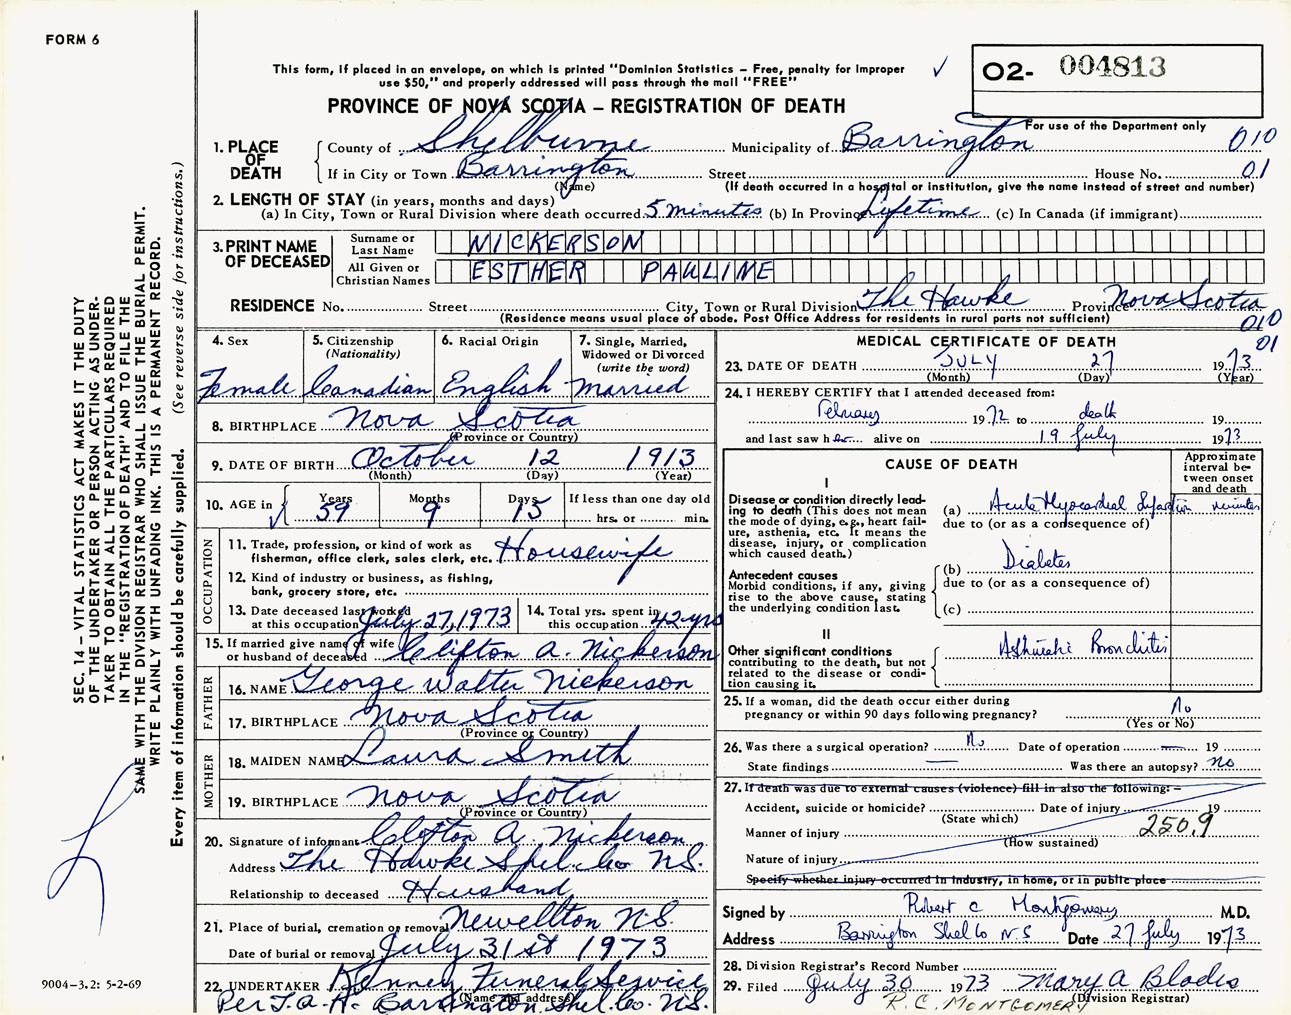 FORM 6
This form, if placed in an envelope, on which is printed "Dominion Statistics – Free, penalty for improper
use $50," and properly addressed will pass through the mail "FREE"
✓
O2- 004813
PROVINCE OF NOVA SCOTIA – REGISTRATION OF DEATH
For use of the Department only
1. PLACE OF DEATH
County of Shelburne Municipality of Barrington 010
If in City or Town Barrington Street House No. 01
(Name) (If death occurred in a hospital or institution, give the name instead of street and number)
2. LENGTH OF STAY (in years, months and days)
(a) In City, Town or Rural Division where death occurred 5 minutes (b) In Province Lifetime (c) In Canada (if immigrant)
3. PRINT NAME OF DECEASED
Surname or Last Name NICKERSON
All Given or Christian Names ESTHER PAULINE
RESIDENCE No. Street City, Town or Rural Division The Hawke Province Nova Scotia
(Residence means usual place of abode. Post Office Address for residents in rural parts not sufficient) 010
01
4. Sex Female
5. Citizenship (Nationality) Canadian
6. Racial Origin English
7. Single, Married, Widowed or Divorced (write the word) Married
8. BIRTHPLACE Nova Scotia
(Province or Country)
9. DATE OF BIRTH October 12 1913
(Month) (Day) (Year)
10. AGE in ✓ Years 59 Months 9 Days 15 If less than one day old
hrs. or min.
OCCUPATION
11. Trade, profession, or kind of work as
fisherman, office clerk, sales clerk, etc. Housewife
12. Kind of industry or business, as fishing,
bank, grocery store, etc.
13. Date deceased last worked
at this occupation July 27, 1973
14. Total yrs. spent in
this occupation 42 yrs
15. If married give name of wife
or husband of deceased Clifton A. Nickerson
FATHER
16. NAME George Walter Nickerson
17. BIRTHPLACE Nova Scotia
(Province or Country)
MOTHER
18. MAIDEN NAME Laura Smith
19. BIRTHPLACE Nova Scotia
(Province or Country)
20. Signature of informant Clifton A. Nickerson
Address The Hawke Shel. Co. N.S.
Relationship to deceased Husband
21. Place of burial, cremation or removal Newellton N.S.
Date of burial or removal July 31st 1973
22. UNDERTAKER Kenney Funeral Service
(Name and address)
Per J.A.H. Barrington, Shel. Co. N.S.
MEDICAL CERTIFICATE OF DEATH
23. DATE OF DEATH JULY 27 1973
(Month) (Day) (Year)
24. I HEREBY CERTIFY that I attended deceased from:
February 1972 to death 19
and last saw her alive on 19 July 1973
CAUSE OF DEATH
Approximate interval between onset and death
I
Disease or condition directly lead-
ing to death (This does not mean
the mode of dying, e.g., heart fail-
ure, asthenia, etc. It means the
disease, injury, or complication
which caused death.)
(a) Acute Myocardial Infarction minutes
due to (or as a consequence of)
Antecedent causes
Morbid conditions, if any, giving
rise to the above cause, stating
the underlying condition last.
(b) Diabetes
due to (or as a consequence of)
(c)
II
Other significant conditions
contributing to the death, but not
related to the disease or condi-
tion causing it.
Asthmatic Bronchitis
25. If a woman, did the death occur either during
pregnancy or within 90 days following pregnancy? No
(Yes or No)
26. Was there a surgical operation? No Date of operation — 19
State findings — Was there an autopsy? no
27. If death was due to external causes (violence) fill in also the following: –
Accident, suicide or homicide? Date of injury 19
(State which)
Manner of injury 250.9
(How sustained)
Nature of injury
Specify whether injury occurred in industry, in home, or in public place
Signed by Robert C Montgomery M.D.
Address Barrington Shel Co N.S Date 27 July 1973
28. Division Registrar's Record Number
29. Filed July 30 1973 Mary A Blades
(Division Registrar)
R. C. MONTGOMERY
SEC. 14 – VITAL STATISTICS ACT MAKES IT THE DUTY
OF THE UNDERTAKER OR PERSON ACTING AS UNDER-
TAKER TO OBTAIN ALL THE PARTICULARS REQUIRED
IN THE "REGISTRATION OF DEATH" AND TO FILE THE
SAME WITH THE DIVISION REGISTRAR WHO SHALL ISSUE THE BURIAL PERMIT.
WRITE PLAINLY WITH UNFADING INK. THIS IS A PERMANENT RECORD.
Every item of information should be carefully supplied. (See reverse side for instructions.)
9004–3.2: 5-2-69